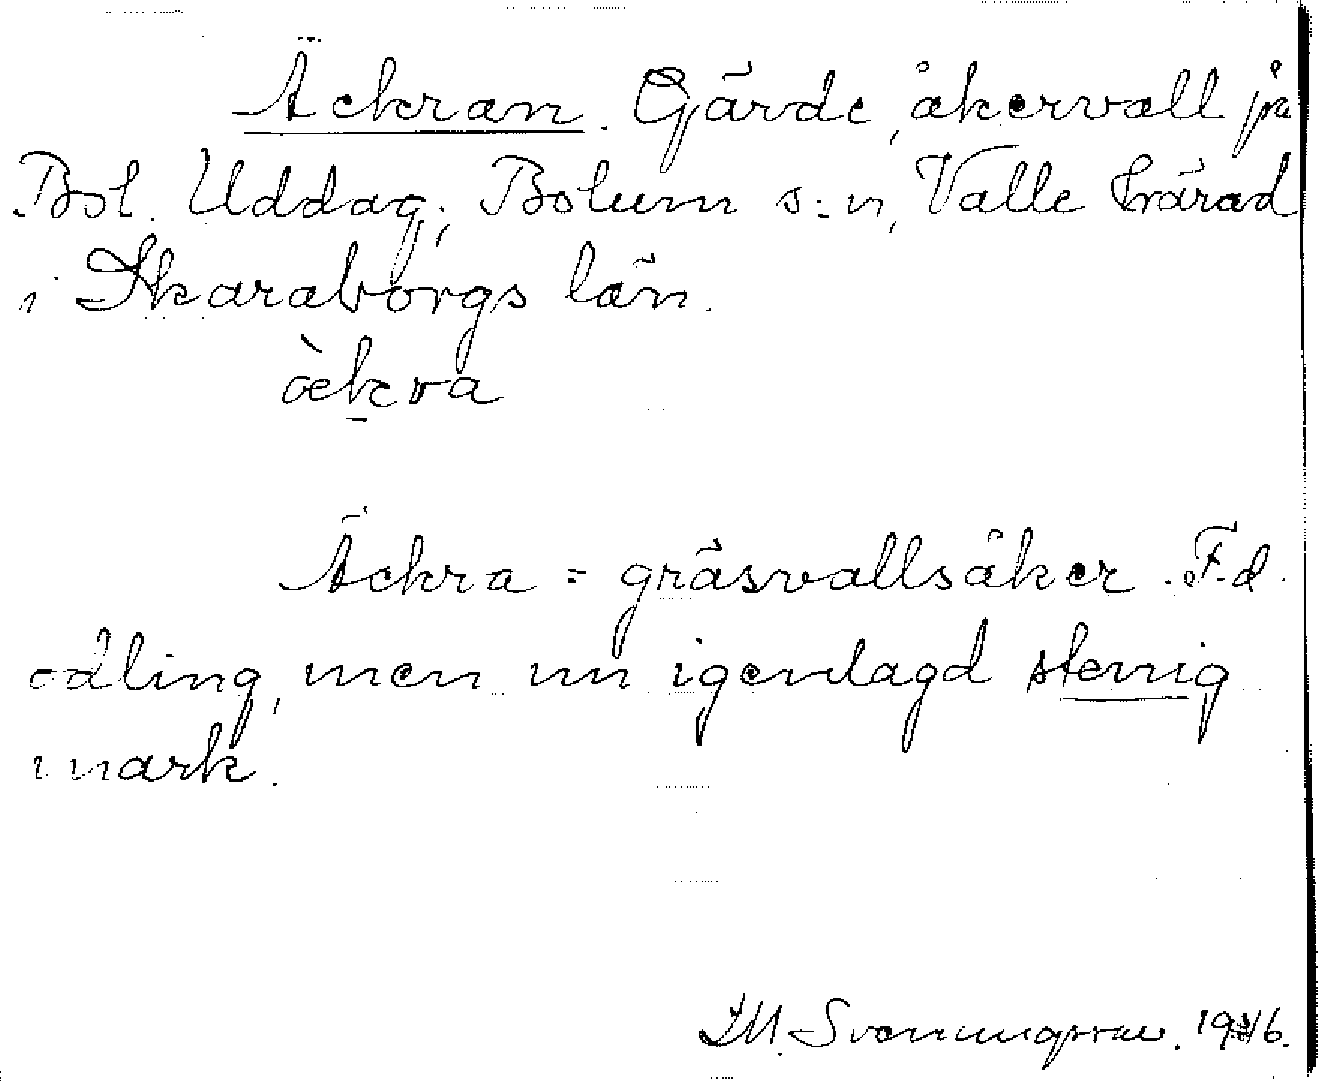 Äckran. Gärde, åkervall på
Bol. Uddag; Bolum s:n, Valle härad
i Skaraborgs län.
æ̀kra
Äckra = gräsvallsåker. F.d.
odling, men nu igenlagd stenig
mark.
I.M. Svenningsson. 1946.